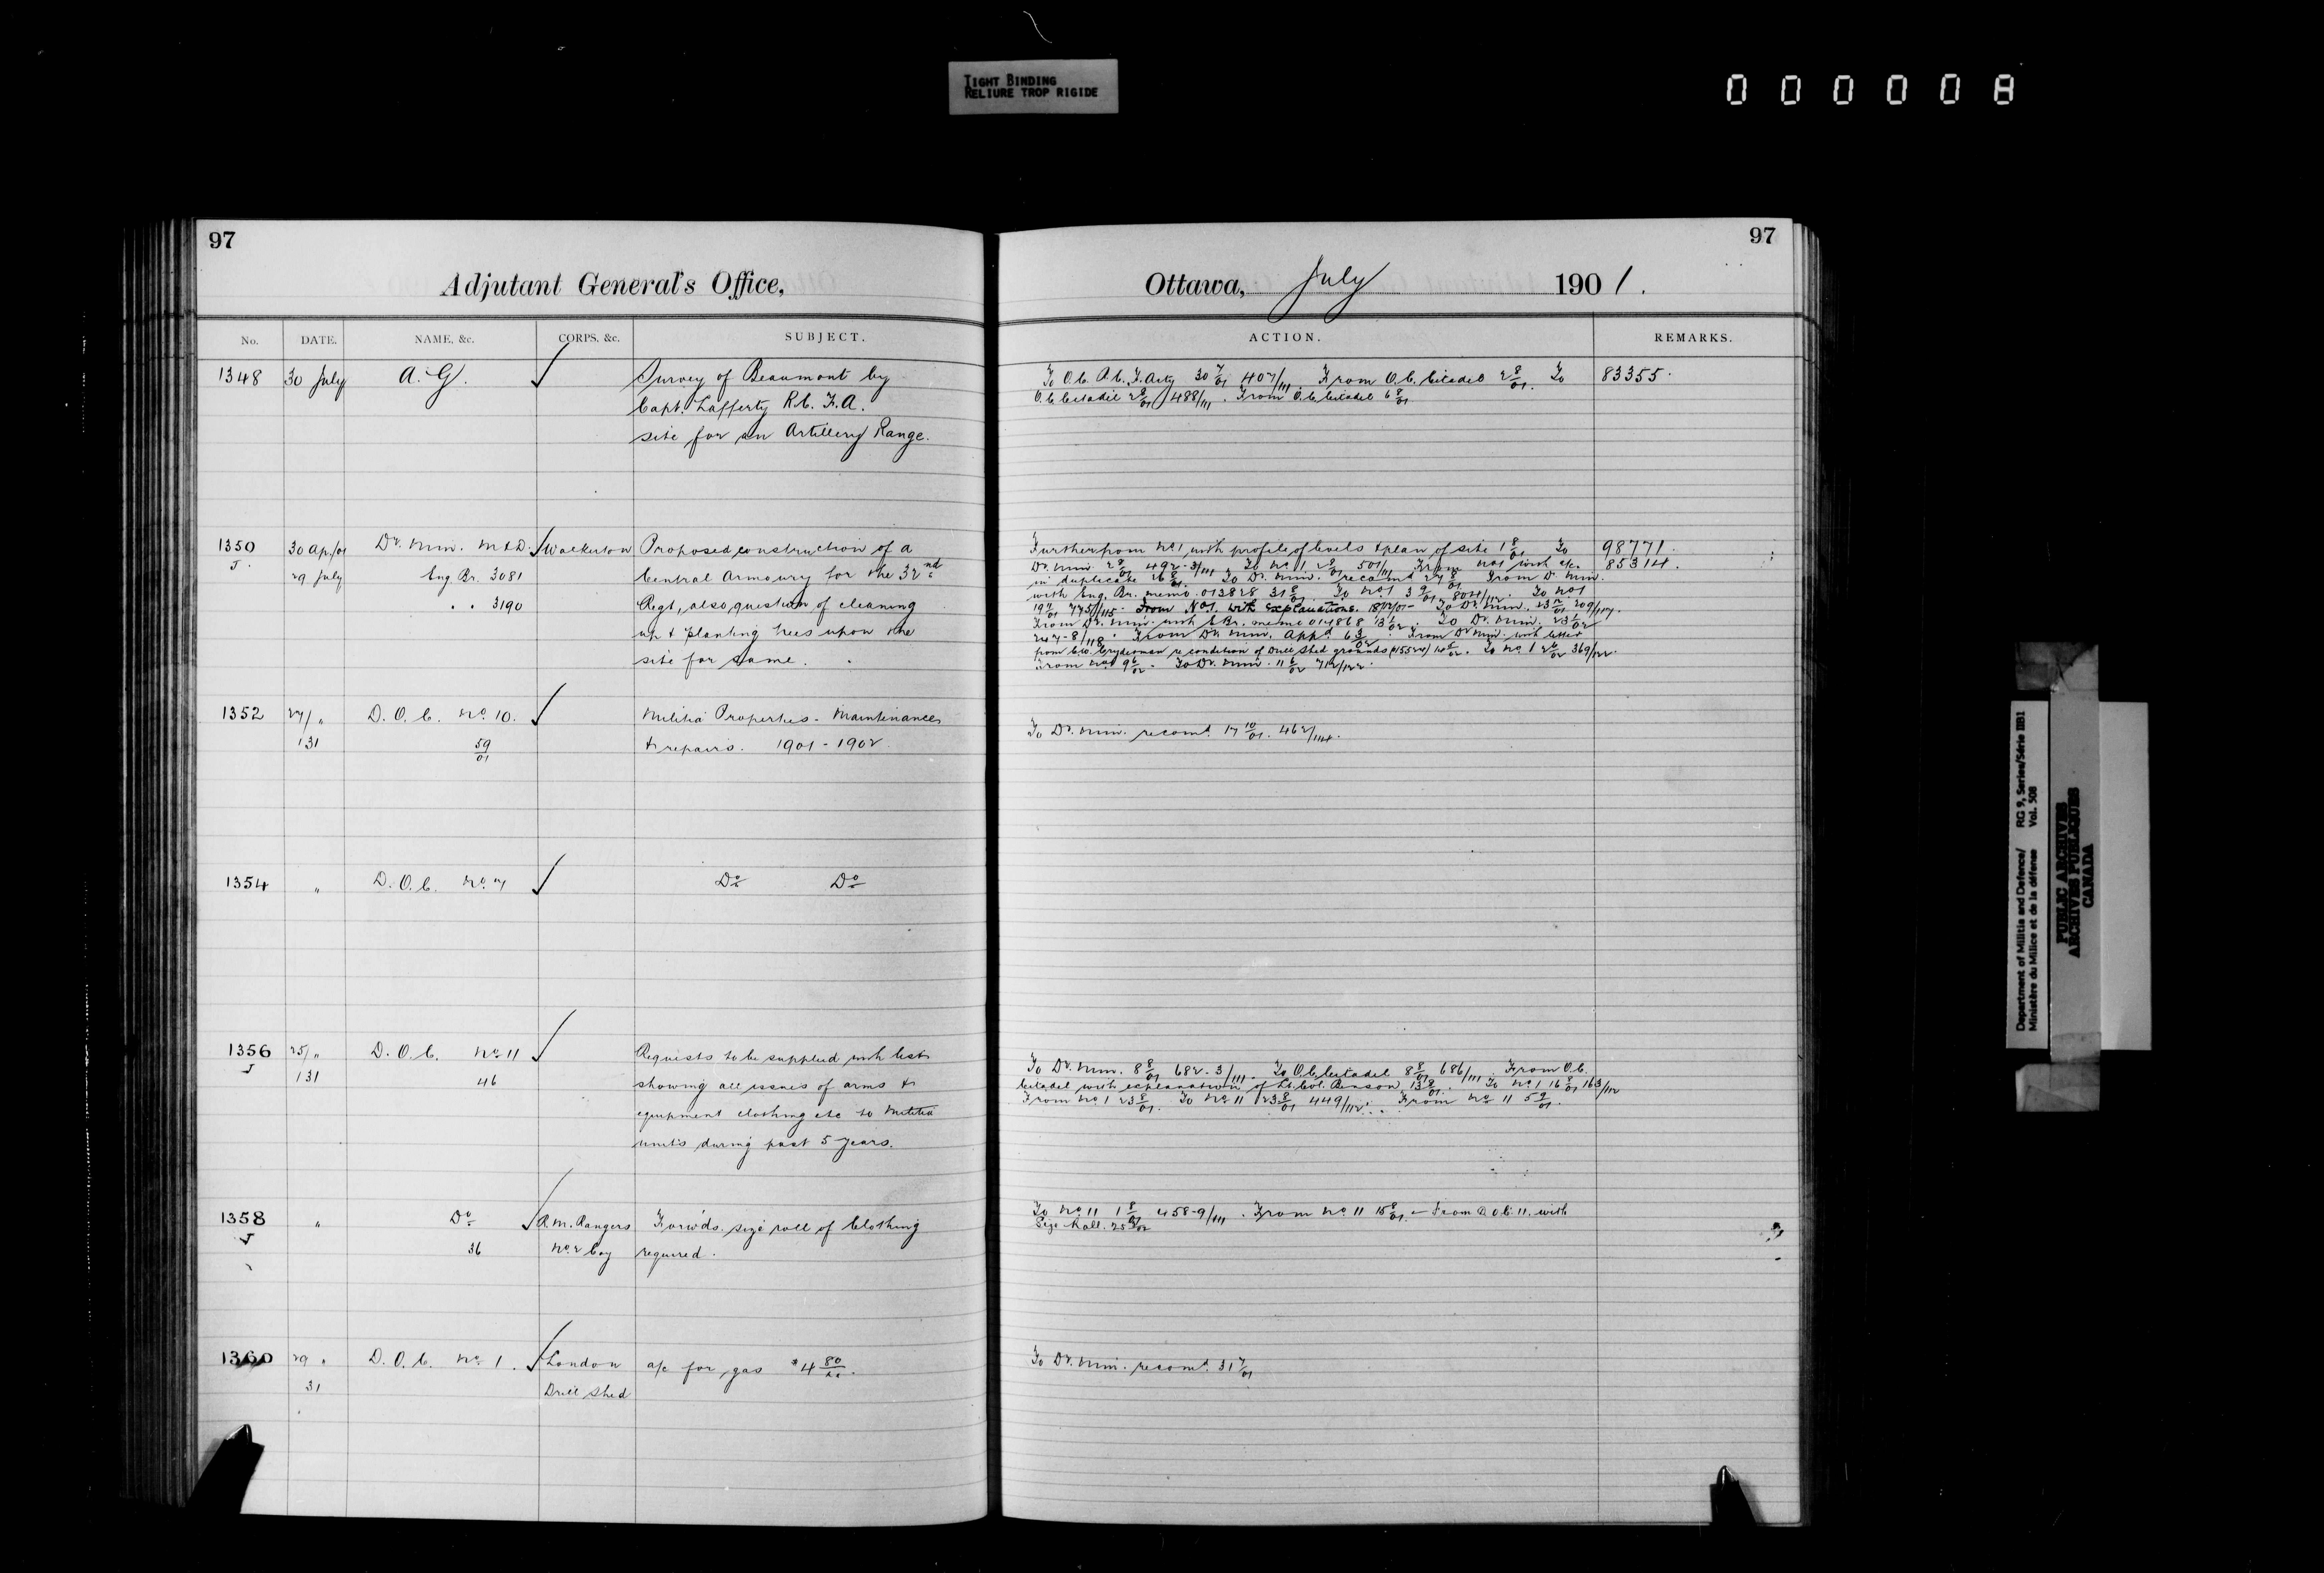 TIGHT BINDING
RELIURE TROP RIGIDE
000008
97
Adjutant General's Office,
No. DATE. NAME, &c. CORPS, &c. SUBJECT.
1348 30 July A. G. ✓ Survey of Beaumont by
Capt. Lafferty R.C.F.A.
site for an Artillery Range.
1350 30 Ap./01 Dr. Min. M & D. ✓ Walkerton Proposed construction of a
J. 29 July Eng. Br. 3081 Central Armoury for the 32nd
" " 3190 Regt, also question of cleaning
up & planting trees upon the
site for same.
1352 27/ " D.O.C. No. 10. ✓ Militia Properties - Maintenance
131 59/01 & repairs. 1901 - 1902.
1354 " D.O.C. No. 7 ✓ Do Do
1356 25/ " D.O.C. No. 11 ✓ Requests to be supplied with list
J 131 46 showing all issues of arms &
equipment clothing etc to Militia
units during past 5 years.
1358 " Do ✓ R.M. Rangers Forw'ds. size roll of Clothing
J 36 No. 2 Coy required.
1360 29 " D.O.C. No. 1. ✓ London a/c for gas $4 80/00.
31 Drill Shed
97
Ottawa, July 1901.
ACTION. REMARKS.
To O.C. R.C.F. Arty 30 7/01 407/111. From O.C. Citadel 2 8/01. To 83355.
O.C. Citadel 2 8/01 488/111. From O.C. Citadel 6 8/01
Further from No. 1 with profile of levels & plan of site 1 8/01 To 98771.
Dr. Min. 2 8/01 492-3/111. To No. 1 2 8/01 501/111 From No. 1 with a/c. 85314.
in duplicate 26 8/01. To Dr. Min. recom'd 27 8/01 From D. Min.
with Eng. Br. memo 013828 31 8/01. To No. 1 3 9/01 804/112. To No 1
From No. 1. with explanations. 18/12/01 - To Dr. Min.
From Dr. Min. with E Br. memo 014868 13 1/02. To Dr. Min. 23 1/02
247-8/118. From Dr. Min. App'd 6 3/02. From Dr Min. with letter
re condition of Drill Shed grounds To No 1 369/122.
From No 1 9 6/02. To Dr. Min. 11 6/02 712/122.
To Dr. Min. recom'd. 17 10/01. 462/114.
To Dr. Min. 8 8/01 682-3/111. To O.C. Citadel 8 8/01 686/111. From O.C.
Citadel with explanation of Lt. Col. Benson 13 8/01. To No 1 16 8/01 163/112
From No. 1 23 8/01. To No. 11 23 8/01 449/112. From No 11 5 9/01.
To No. 11 1 8/01 458-9/111. From No. 11 15 8/01. - From D.O.C. 11. with
Size Roll.
To Dr. Min. recom'd. 31 7/01
Department of Militia and Defence/ RG 9, Series/Série IIB1
Ministère du Milice et de la défense Vol. 508
PUBLIC ARCHIVES
ARCHIVES PUBLIQUES
CANADA